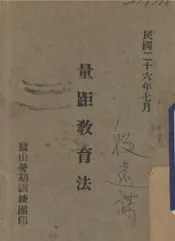 民國二十六年七月
量距教育法
廬山暑期訓練團印